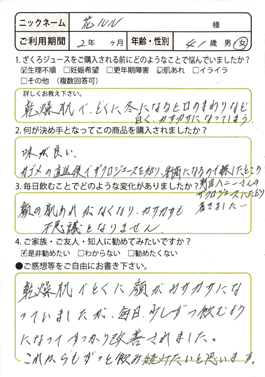 ニックネーム 花ルル 様
ご利用期間 2年 ヶ月 年齢・性別 41歳 男・女
1.ざくろジュースをご購入される前にどのようなことで悩んでいましたか？
☑生理不順 □妊娠希望 □更年期障害 ☑肌あれ □イライラ
□その他（複数回答可）
詳しくお書き下さい。
乾燥肌で、とくに冬になると口のまわりなど
白く、カサカサになってしまう。
2.何が決め手となってこの商品を購入されましたか？
味が良い。
3.毎日飲むことでどのような変化がありましたか？
顔の肌あれがなくなり、カサカサも
不思議となりません。
4.ご家族・ご友人・知人に勧めてみたいですか？
☑是非勧めたい □わからない □勧めたくない
●ご感想等をご自由にお書き下さい。
乾燥肌でとくに顔がカサカサにな
っていましたが、毎日、少しずつ飲むよう
になってすっかり改善されました。
これからもずっと飲み続けたいと思います。